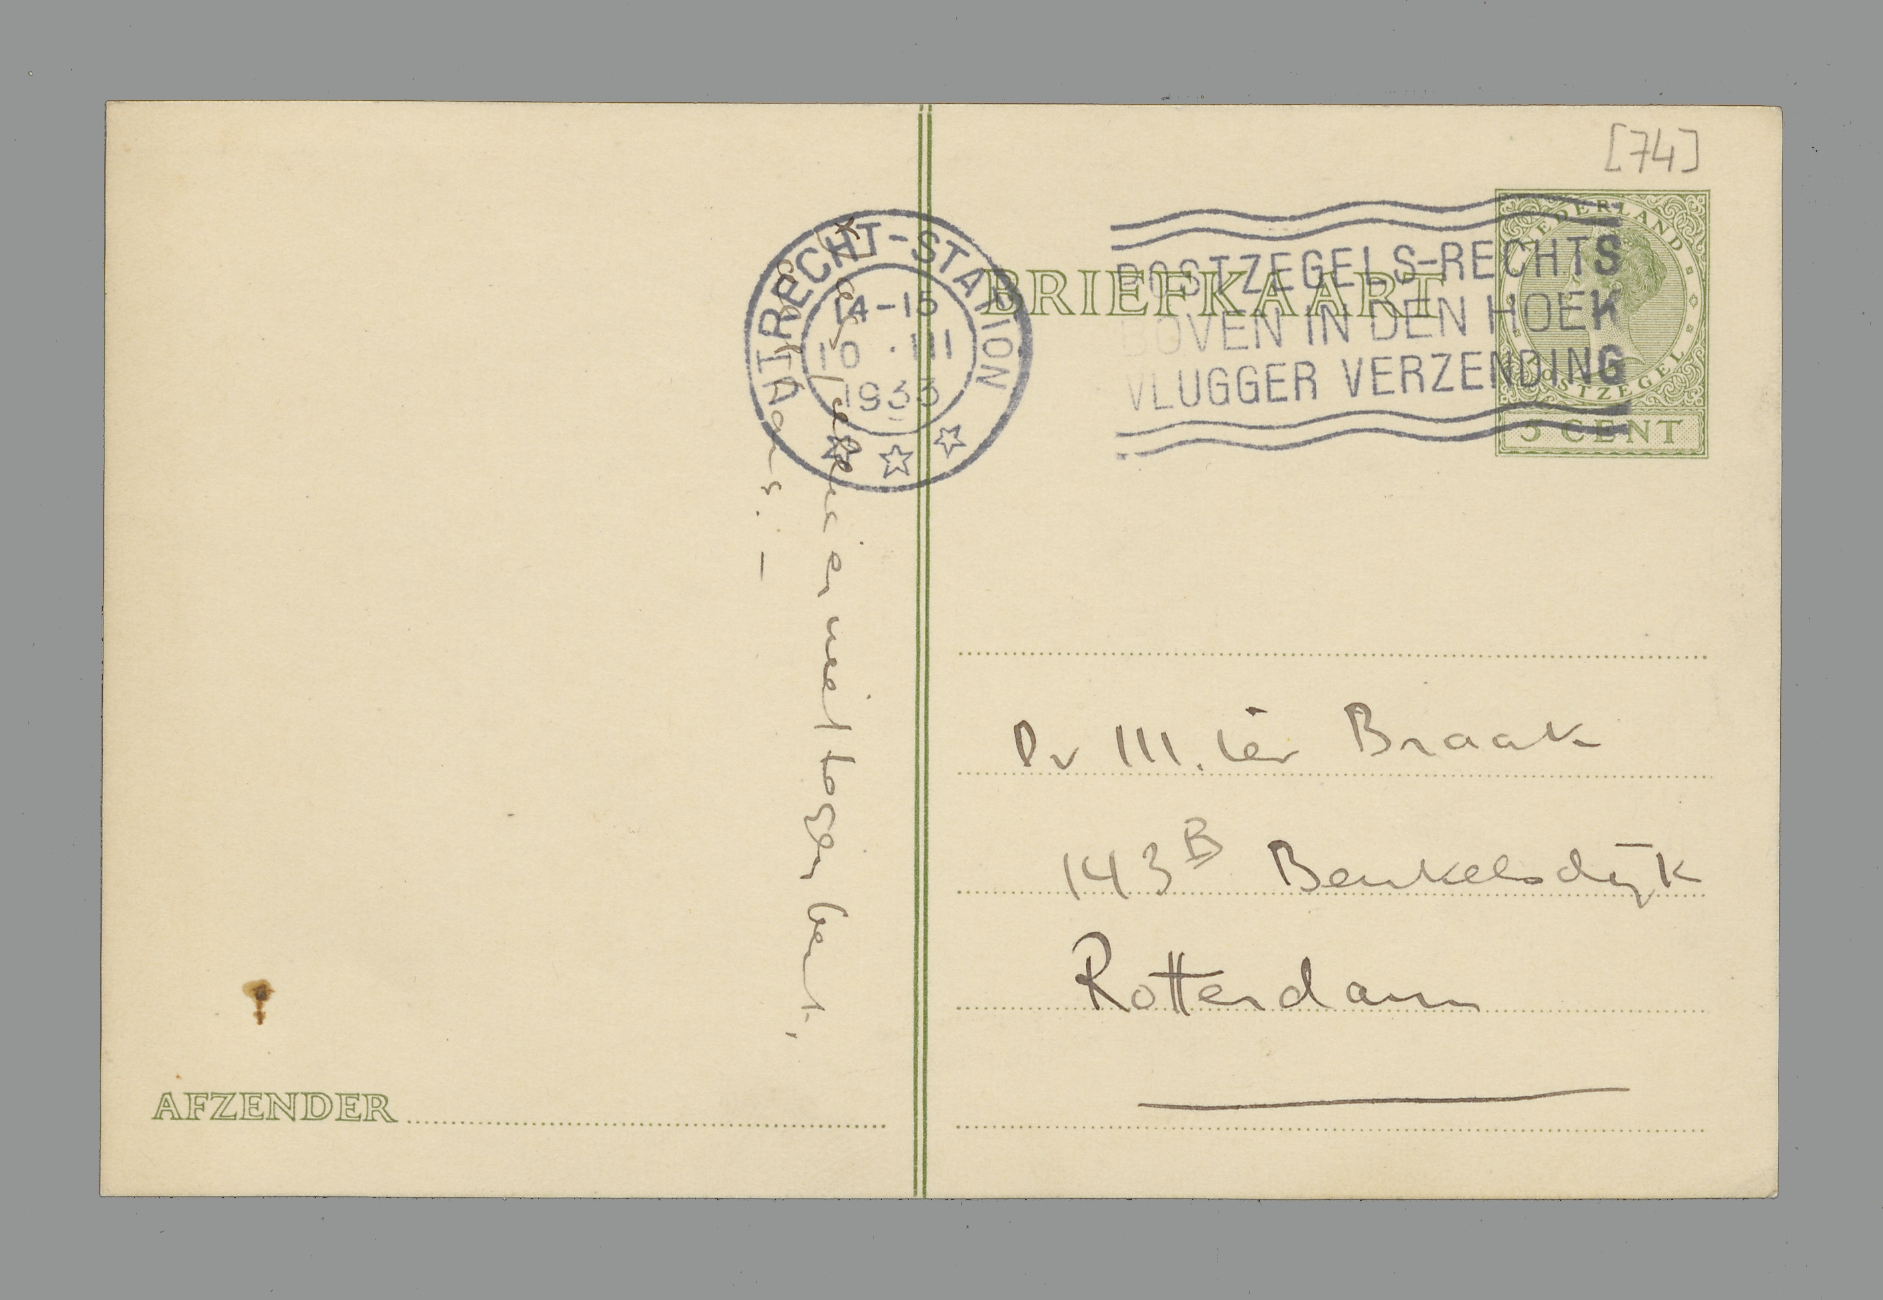 [74]
UTRECHT-STATION
14-15
10 · III
1933
POSTZEGELS-RECHTS
BOVEN IN DEN HOEK
VLUGGER VERZENDING
BRIEFKAART
NEDERLAND
POSTZEGEL
5 CENT
er niet tegen bent,
Dr M. ter Braak
143B Beukelsdijk
Rotterdam
AFZENDER